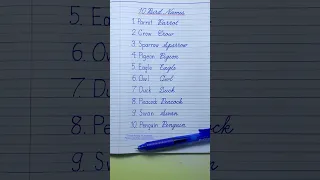 10 Bird Names
1. Parrot Parrot
2. Crow Crow
3. Sparrow Sparrow
4. Pigeon Pigeon
5. Eagle Eagle
6. Owl Owl
7. Duck Duck
8. Peacock Peacock
9. Swan Swan
10. Penguin Penguin
5. Ea
6. Ow
7. Du
8. Pe
9. Sw